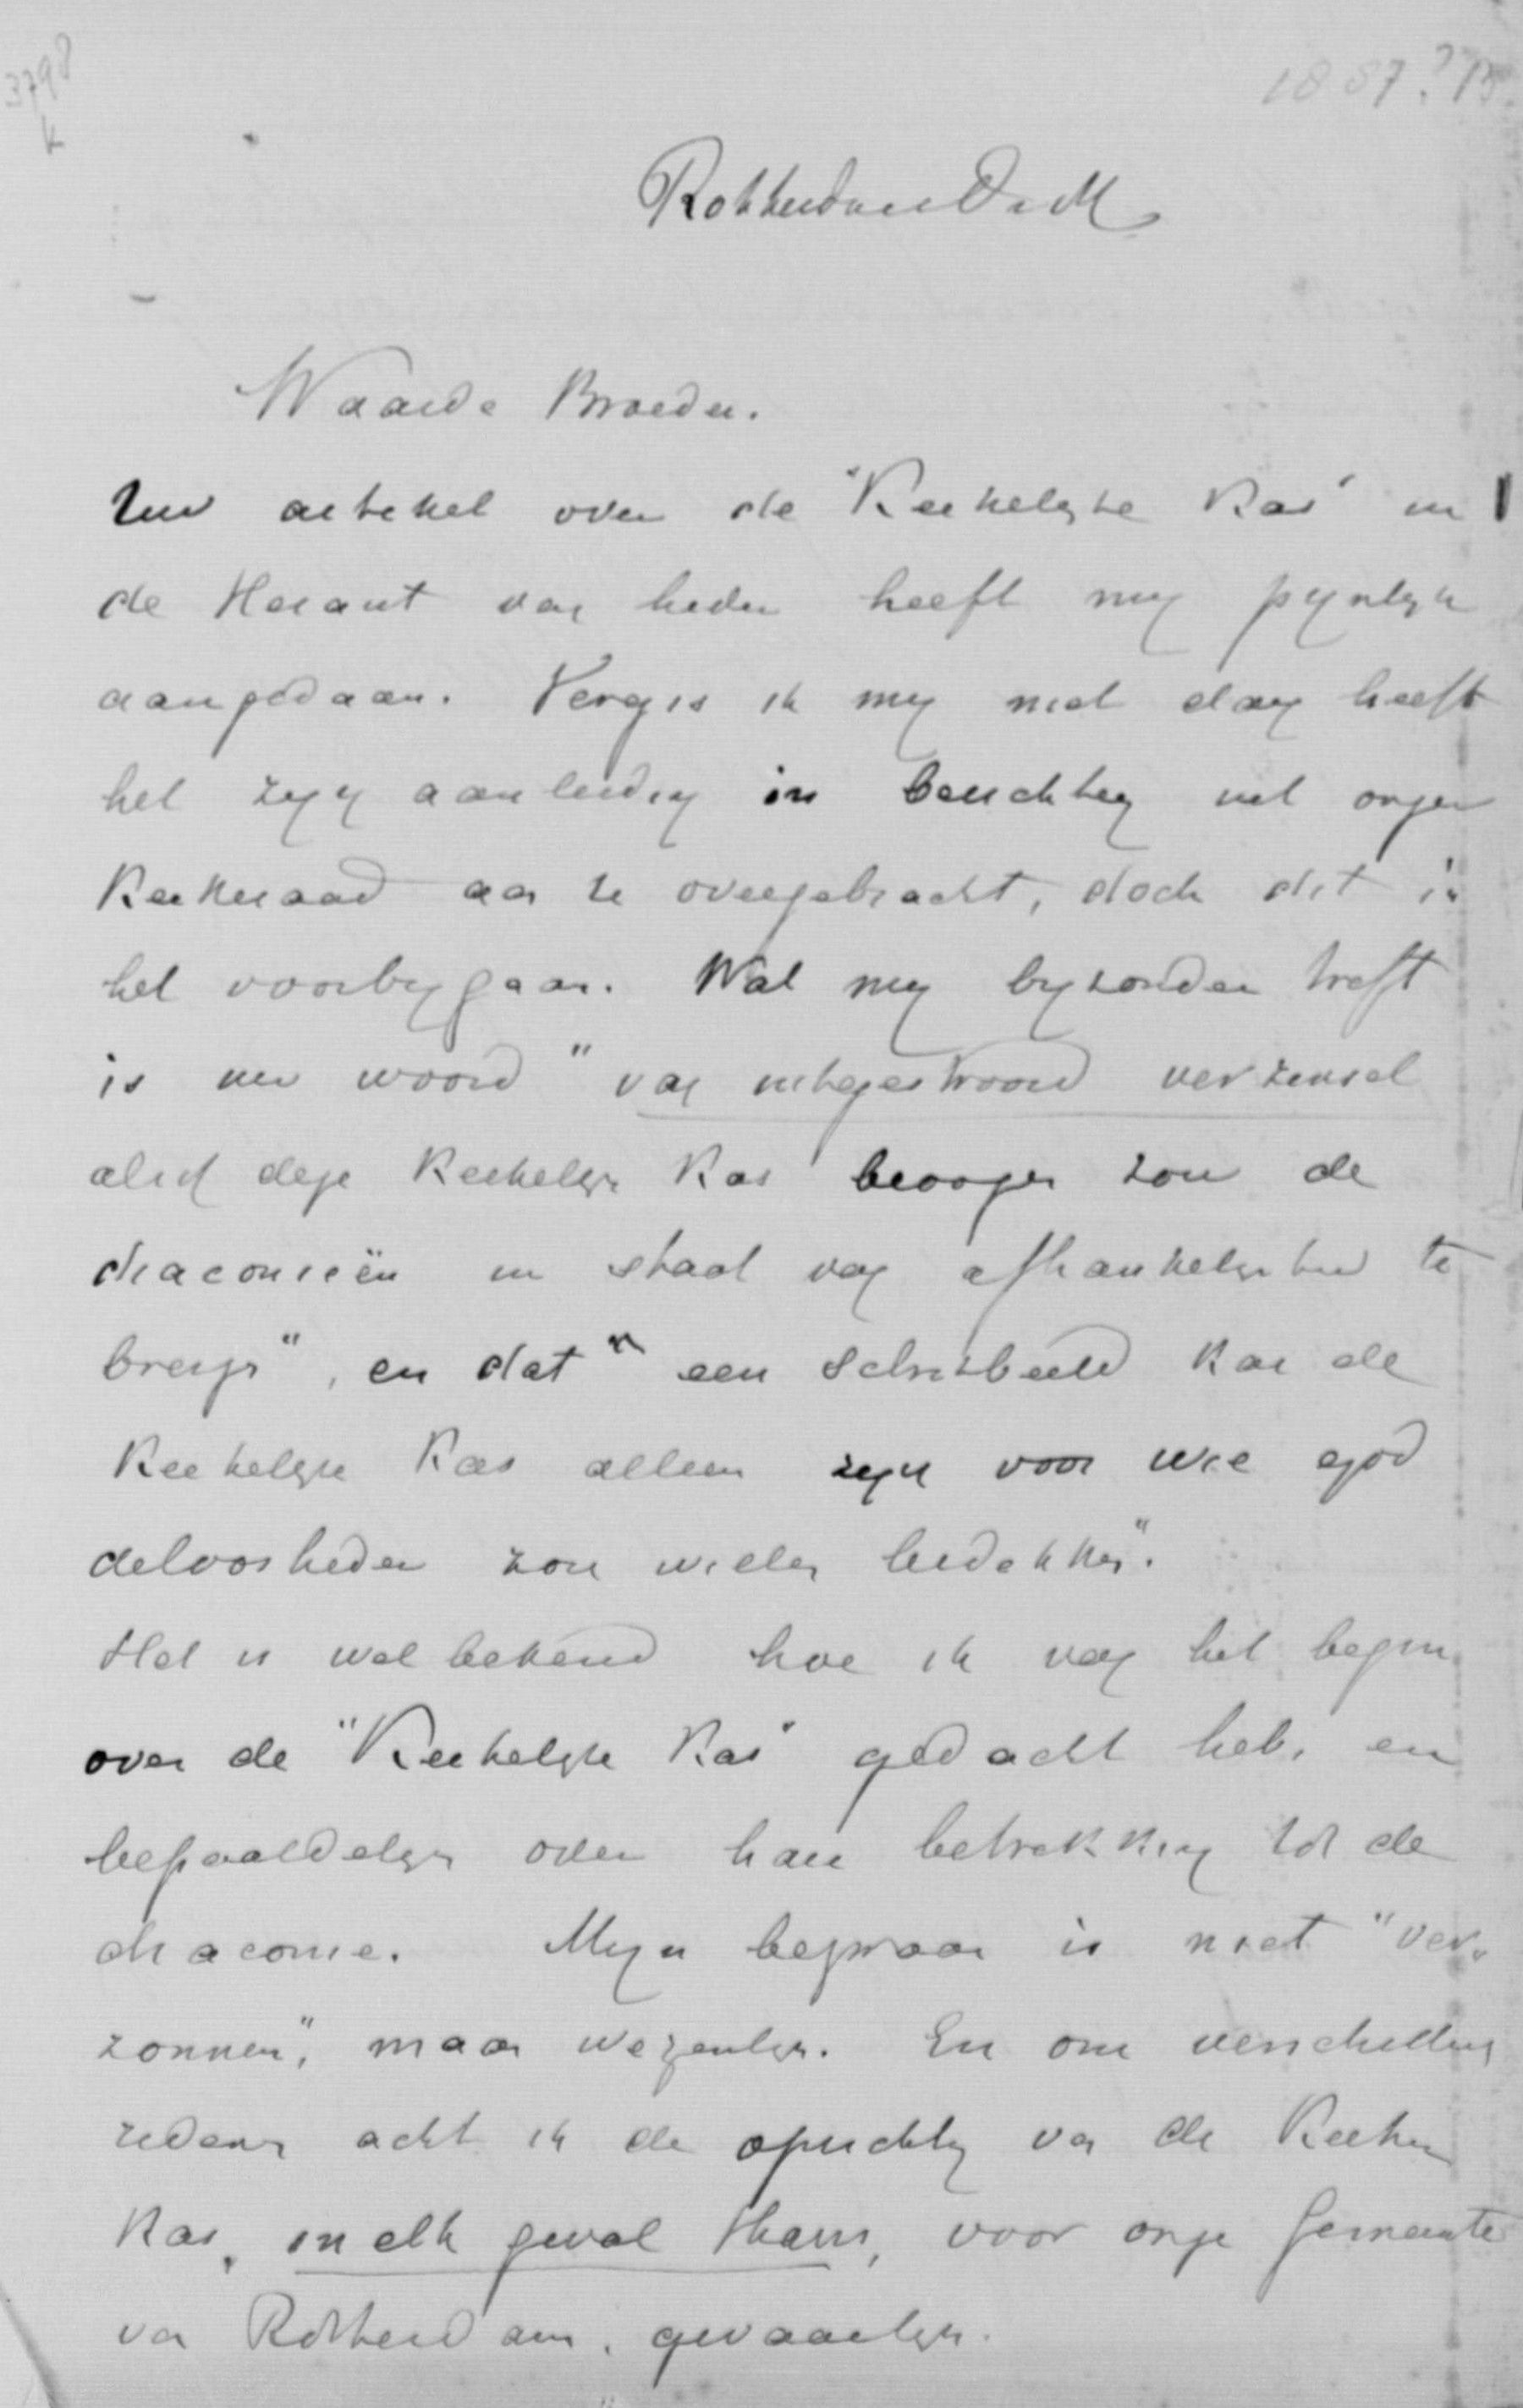 3798
k
1887? B.
Rotterdam D. M
Waarde Broeder.
Uw artikel over de "Kerkelijke Kas" in
de Heraut van heden heeft mij pijnlijk
aangedaan. Vergis ik mij niet dan heeft
het zijn aanleiding in berichten uit onzen
Kerkeraad aan U overgebracht, doch dit in
het voorbijgaan. Wat mij byzonder treft
is uw woord "van uitgestrooid verzinsel
alsof deze Kerkelijke Kas beoogen zou de
diaconieën in staat van afhankelijkheid te
brengen", en dat "een schrikbeeld kan de
Kerkelijke Kas alleen zijn voor wie god
deloosheden zou willen bedekken".
Het is wel bekend hoe ik van het begin
over de "Kerkelijke Kas" gedacht heb, en
bepaaldelijk over hare betrekking tot de
diaconie. Mijn bezwaar is niet "ver.
zonnen", maar wezenlijk. En om verschillende
redenen acht ik de oprichting van de Kerken
Kas, in elk geval thans, voor onze Gemeente
van Rotterdam, gevaarlijk.